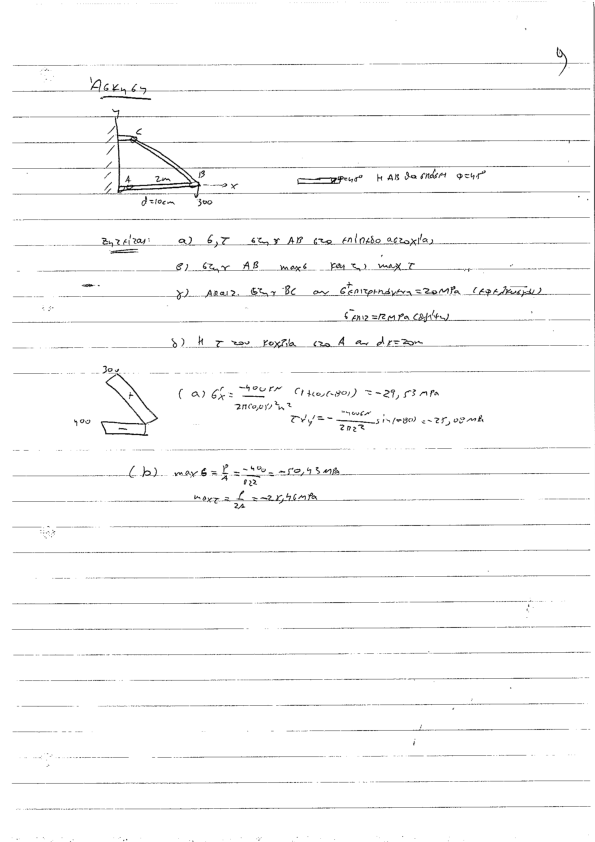 9
Άσκηση
y
C
A 2m B x
d=10cm 300
φ=45° Η ΑΒ θα σπάσει φ=45°
Ζητείται: α) σ, τ στην ΑΒ στο επίπεδο αστοχίας
β) στην ΑΒ maxσ και την max τ
γ) ΑBC στην BC αν σ⁺επιτρεπόμενη=20MPa (εφελκυσμού)
σ⁻επιτ=12MPa (θλίψη)
δ) Η τ του κοχλία στο Α αν dκ=2cm
300
+
400
−
(a) σx' = -400kN / 2π(0,05)²m² (1+cos(-80)) = -29,53 MPa
τx'y' = - -400kN / 2π2² sin(-80) = -25,08 MPa
(b) max σ = P/A = -400 / π2² = -50,93 MPa
max τ = P/2A = -25,46 MPa